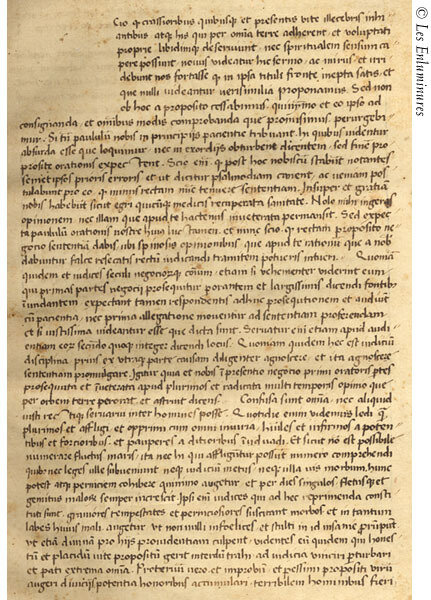 cio q crassioribus quibusq et presentis vite illecebris inhi
antibus atq his qui per omnia terre adherent et voluptati
proprie libidinique deserviunt nec spiritalem sensum ca
pere possunt novus videatur hic sermo ac mirus et irri
debunt nos fortasse q in ipsa tituli fronte inepta satis et
que nulli videantur verisimilia proponamus Sed non
eb hoc a proposito cessabimus quinimo et eo ipso ad
consignanda et omnibus modis comprobanda que promisimus perurgebi
mur Si tn paululum nobis in principiis pacientie tribuant In quibus videntur
absurda esse que loquimur nec in exordiis obturbent dicentem sed fine pro
posite orationis expectent Scio eni q post hoc nobiscum stabunt notantes
semetipsos prioris erroris et ut dicitur psalmodiam canent ac veniam pos
tulabunt pro eo q minus rectam nunc tenuere sententiam Insuper et gratiam
nobis habebunt sicut egri quiq medicis recuperata sanitate Nolo mihi ingeras
opinionem nec illam que apud te hactenus inveterata permansit Sed expec
ta paululum orationis nostre
negocio sententiam dabis ubi
dabuntur false resecatis recti iudicandi tramitem potueris intueri Quoniam
quidem et iudices seculi negociorumque etiam si vehementer viderint eum
qui primas partes negocii prosequitur perorantem et largissimis dicendi fontibus
inundantem expectant tamen respondentis adhuc prosequutionem et audiunt
cum pacientia nec prima allegatione moventur ad sententiam proferendam
et si iustissima videantur esse que dicta sunt Servatur eni etiam apud audi
entiam eorum secundo quoq integer dicendi locus Quoniam quidem hec est iudicum
disciplina prius ex utraq parte causam diligenter agnoscere et ita agnoscere
sententiam promulgare Igitur quia et nobis in presenti negocio primi oratores partes
prosequuta et inveterata apud plurimos et radicata multi temporis opinio que
per orbem terre perorat et astruit dicens Confusa sunt omnia nec aliquid
iusti rectiq servari inter homines posse Quotidie enim videmus ledi q
plurimos et affligi et opprimi cum omni iniuria humiles et infirmos a poten
tibus et fortioribus et pauperes a ditioribus invadi Et sicut non est possibile
numerare fluctus maris ita nec hii qui affliguntur possunt numero comprehendi
quibus nec leges ulle subveniunt neq iudicum metus neq ulla vis morbum hunc
potest atq perniciem cohibere quinimo augetur et per dies singulos fletusque et
gemitus malorum semper increscit Ipsi eni iudices qui ad hec reprimenda consti
tuti sunt graviores tempestates et perniciosiores suscitant morbos et in tantum
labes huius mali augetur ut non nulli infoelices et stulti in id insanie prorumpant
ut etiam divinam pro hiis providentiam culpent videntes eum quidem qui hones
tum et placidum vite propositum gerit interdum trahi ad iudicia vinciri perturbari
et pati extrema omnia Protervum vero et improbum et pessimi propositi virum
augeri diviciis potentia honoribus accumulari terribilem hominibus fieri
© Les Enluminures